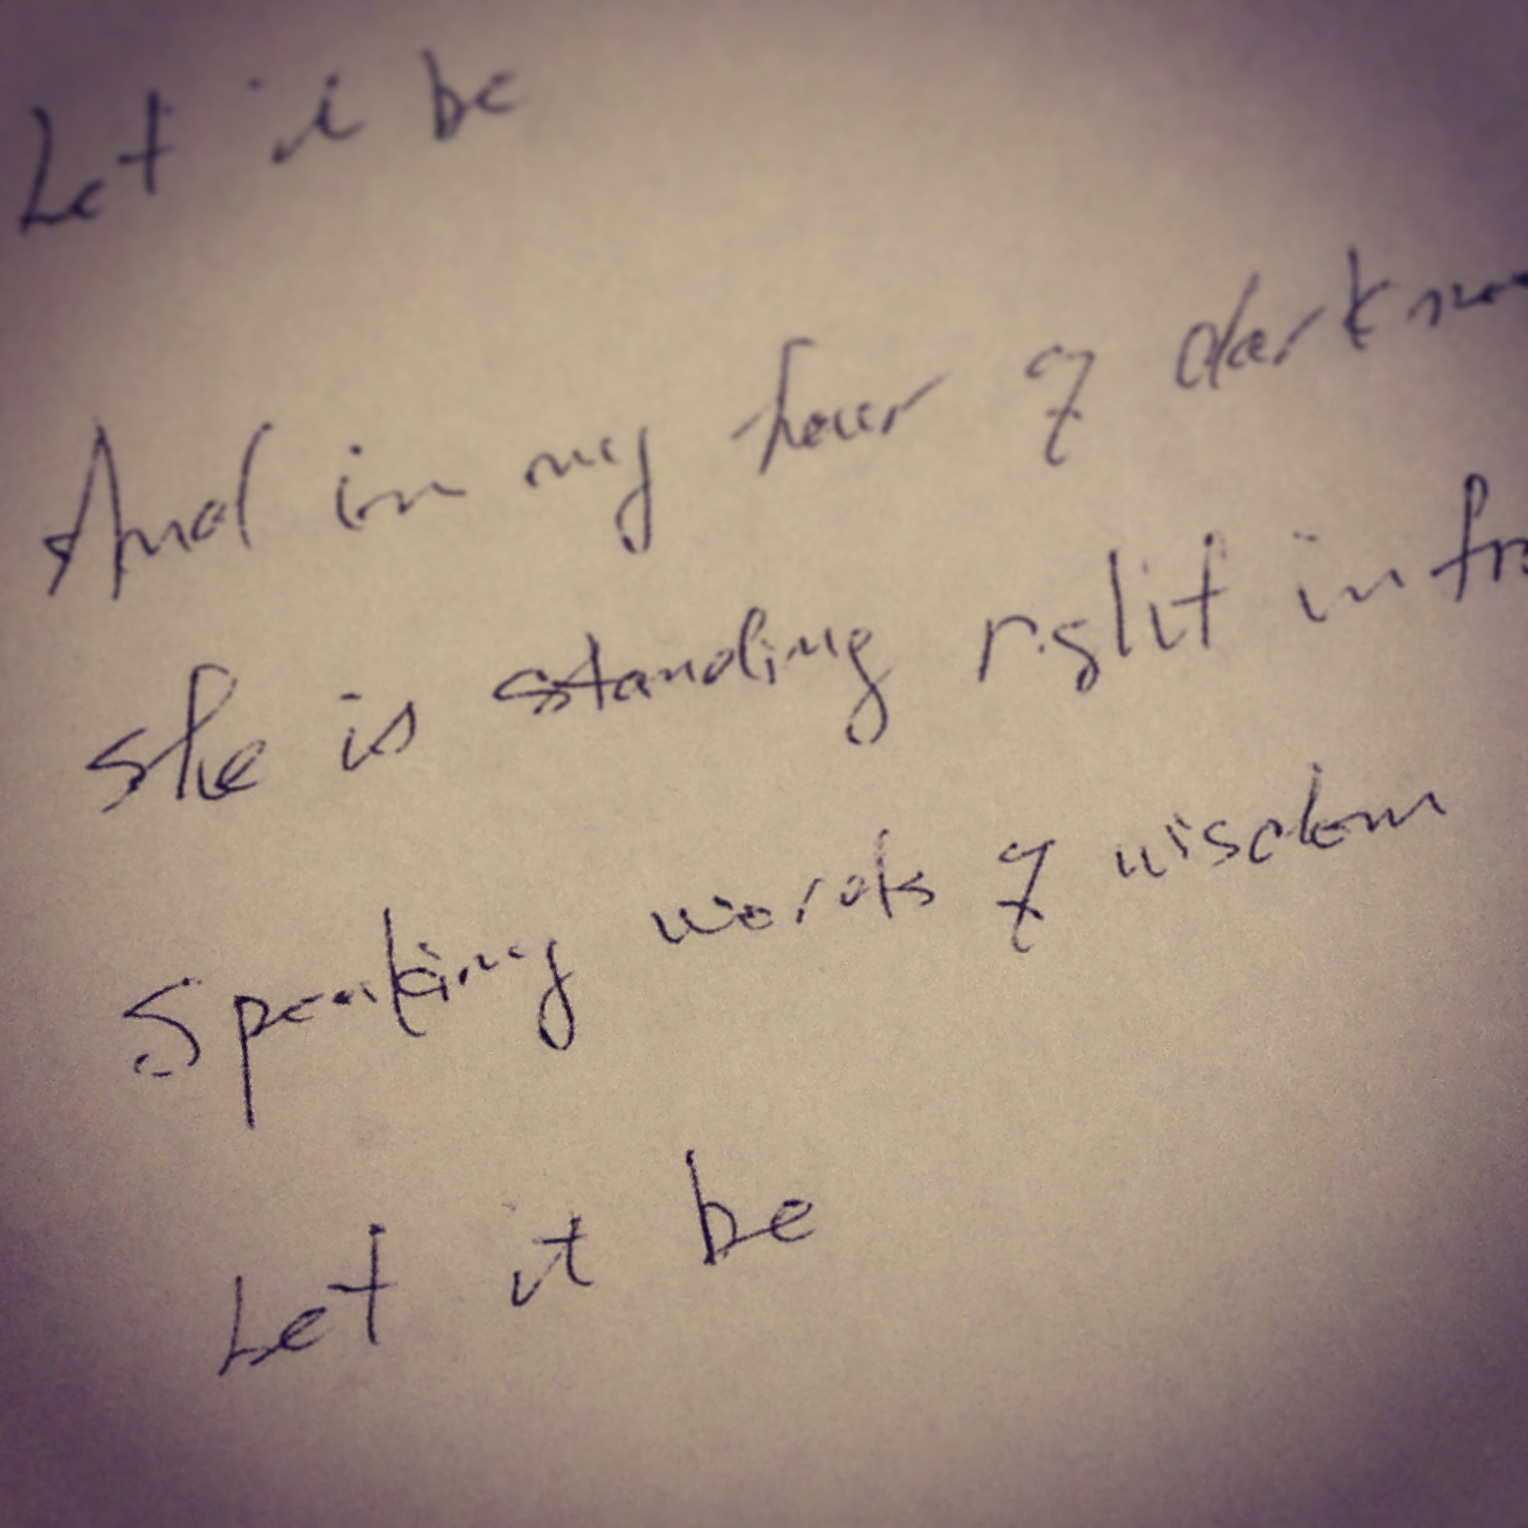 Let it be
And in my hour of darkne
She is standing right in fro
Speaking words of wisdom
Let it be